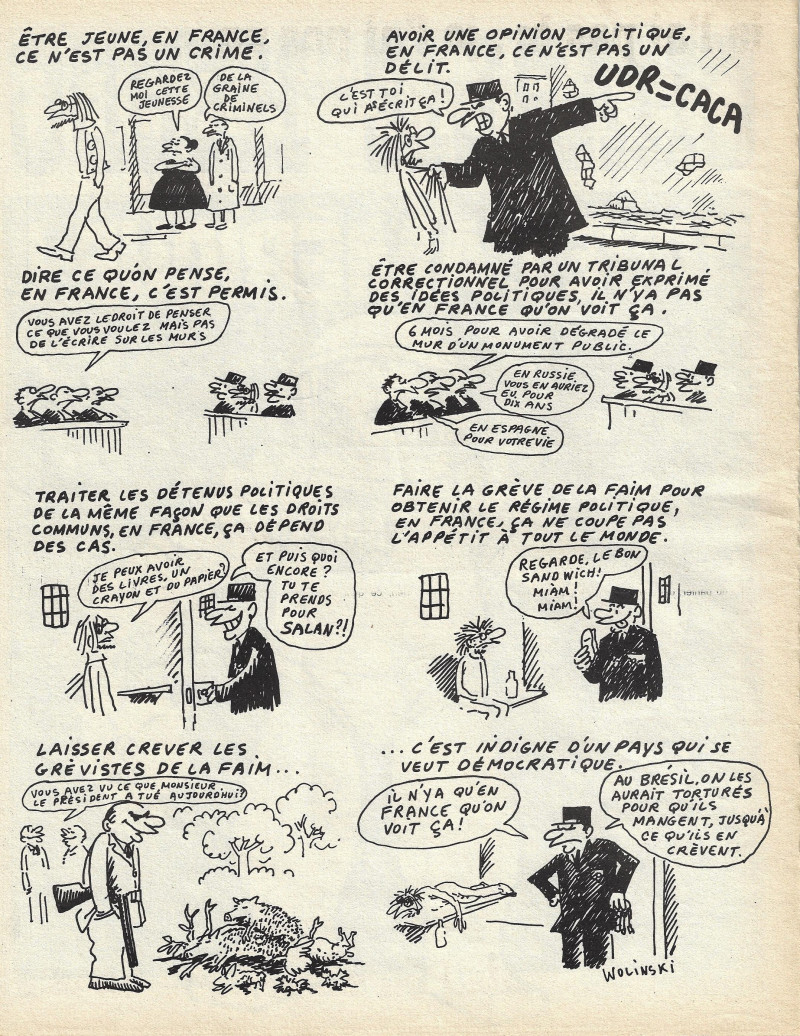 ÊTRE JEUNE, EN FRANCE,
CE N'EST PAS UN CRIME.
REGARDEZ
MOI CETTE
JEUNESSE
DE LA
GRAINE
DE
CRIMINELS
AVOIR UNE OPINION POLITIQUE,
EN FRANCE, CE N'EST PAS UN
DÉLIT.
L'EST TOI
QUI A ÉCRIT ÇA!
UDR=CACA
DIRE CE QU'ON PENSE,
EN FRANCE, C'EST PERMIS.
VOUS AVEZ LE DROIT DE PENSER
CE QUE VOUS VOULEZ MAIS PAS
DE L'ÉCRIRE SUR LES MURS
ÊTRE CONDAMNÉ PAR UN TRIBUNAL
CORRECTIONNEL POUR AVOIR EXPRIMÉ
DES IDÉES POLITIQUES, IL N'Y A PAS
QU'EN FRANCE QU'ON VOIT ÇA.
6 MOIS POUR AVOIR DÉGRADÉ LE
MUR D'UN MONUMENT PUBLIC.
EN RUSSIE
VOUS EN AURIEZ
EU POUR
DIX ANS
EN ESPAGNE
POUR VOTRE VIE
TRAITER LES DÉTENUS POLITIQUES
DE LA MÊME FAÇON QUE LES DROITS
COMMUNS, EN FRANCE, ÇA DÉPEND
DES CAS.
JE PEUX AVOIR
DES LIVRES, UN
CRAYON ET DU PAPIER?
ET PUIS QUOI
ENCORE?
TU TE
PRENDS
POUR
SALAN?!
FAIRE LA GRÈVE DE LA FAIM POUR
OBTENIR LE RÉGIME POLITIQUE,
EN FRANCE, ÇA NE COUPE PAS
L'APPÉTIT À TOUT LE MONDE.
REGARDE, LE BON
SANDWICH!
MIAM!
MIAM!
LAISSER CREVER LES
GRÉVISTES DE LA FAIM...
VOUS AVEZ VU CE QUE MONSIEUR
LE PRÉSIDENT A TUÉ AUJOURDHUI?
... C'EST INDIGNE D'UN PAYS QUI SE
VEUT DÉMOCRATIQUE.
IL N'Y A QU'EN
FRANCE QU'ON
VOIT ÇA!
AU BRÉSIL, ON LES
AURAIT TORTURÉS
POUR QU'ILS
MANGENT, JUSQU'À
CE QU'ILS EN
CRÈVENT.
WOLINSKI